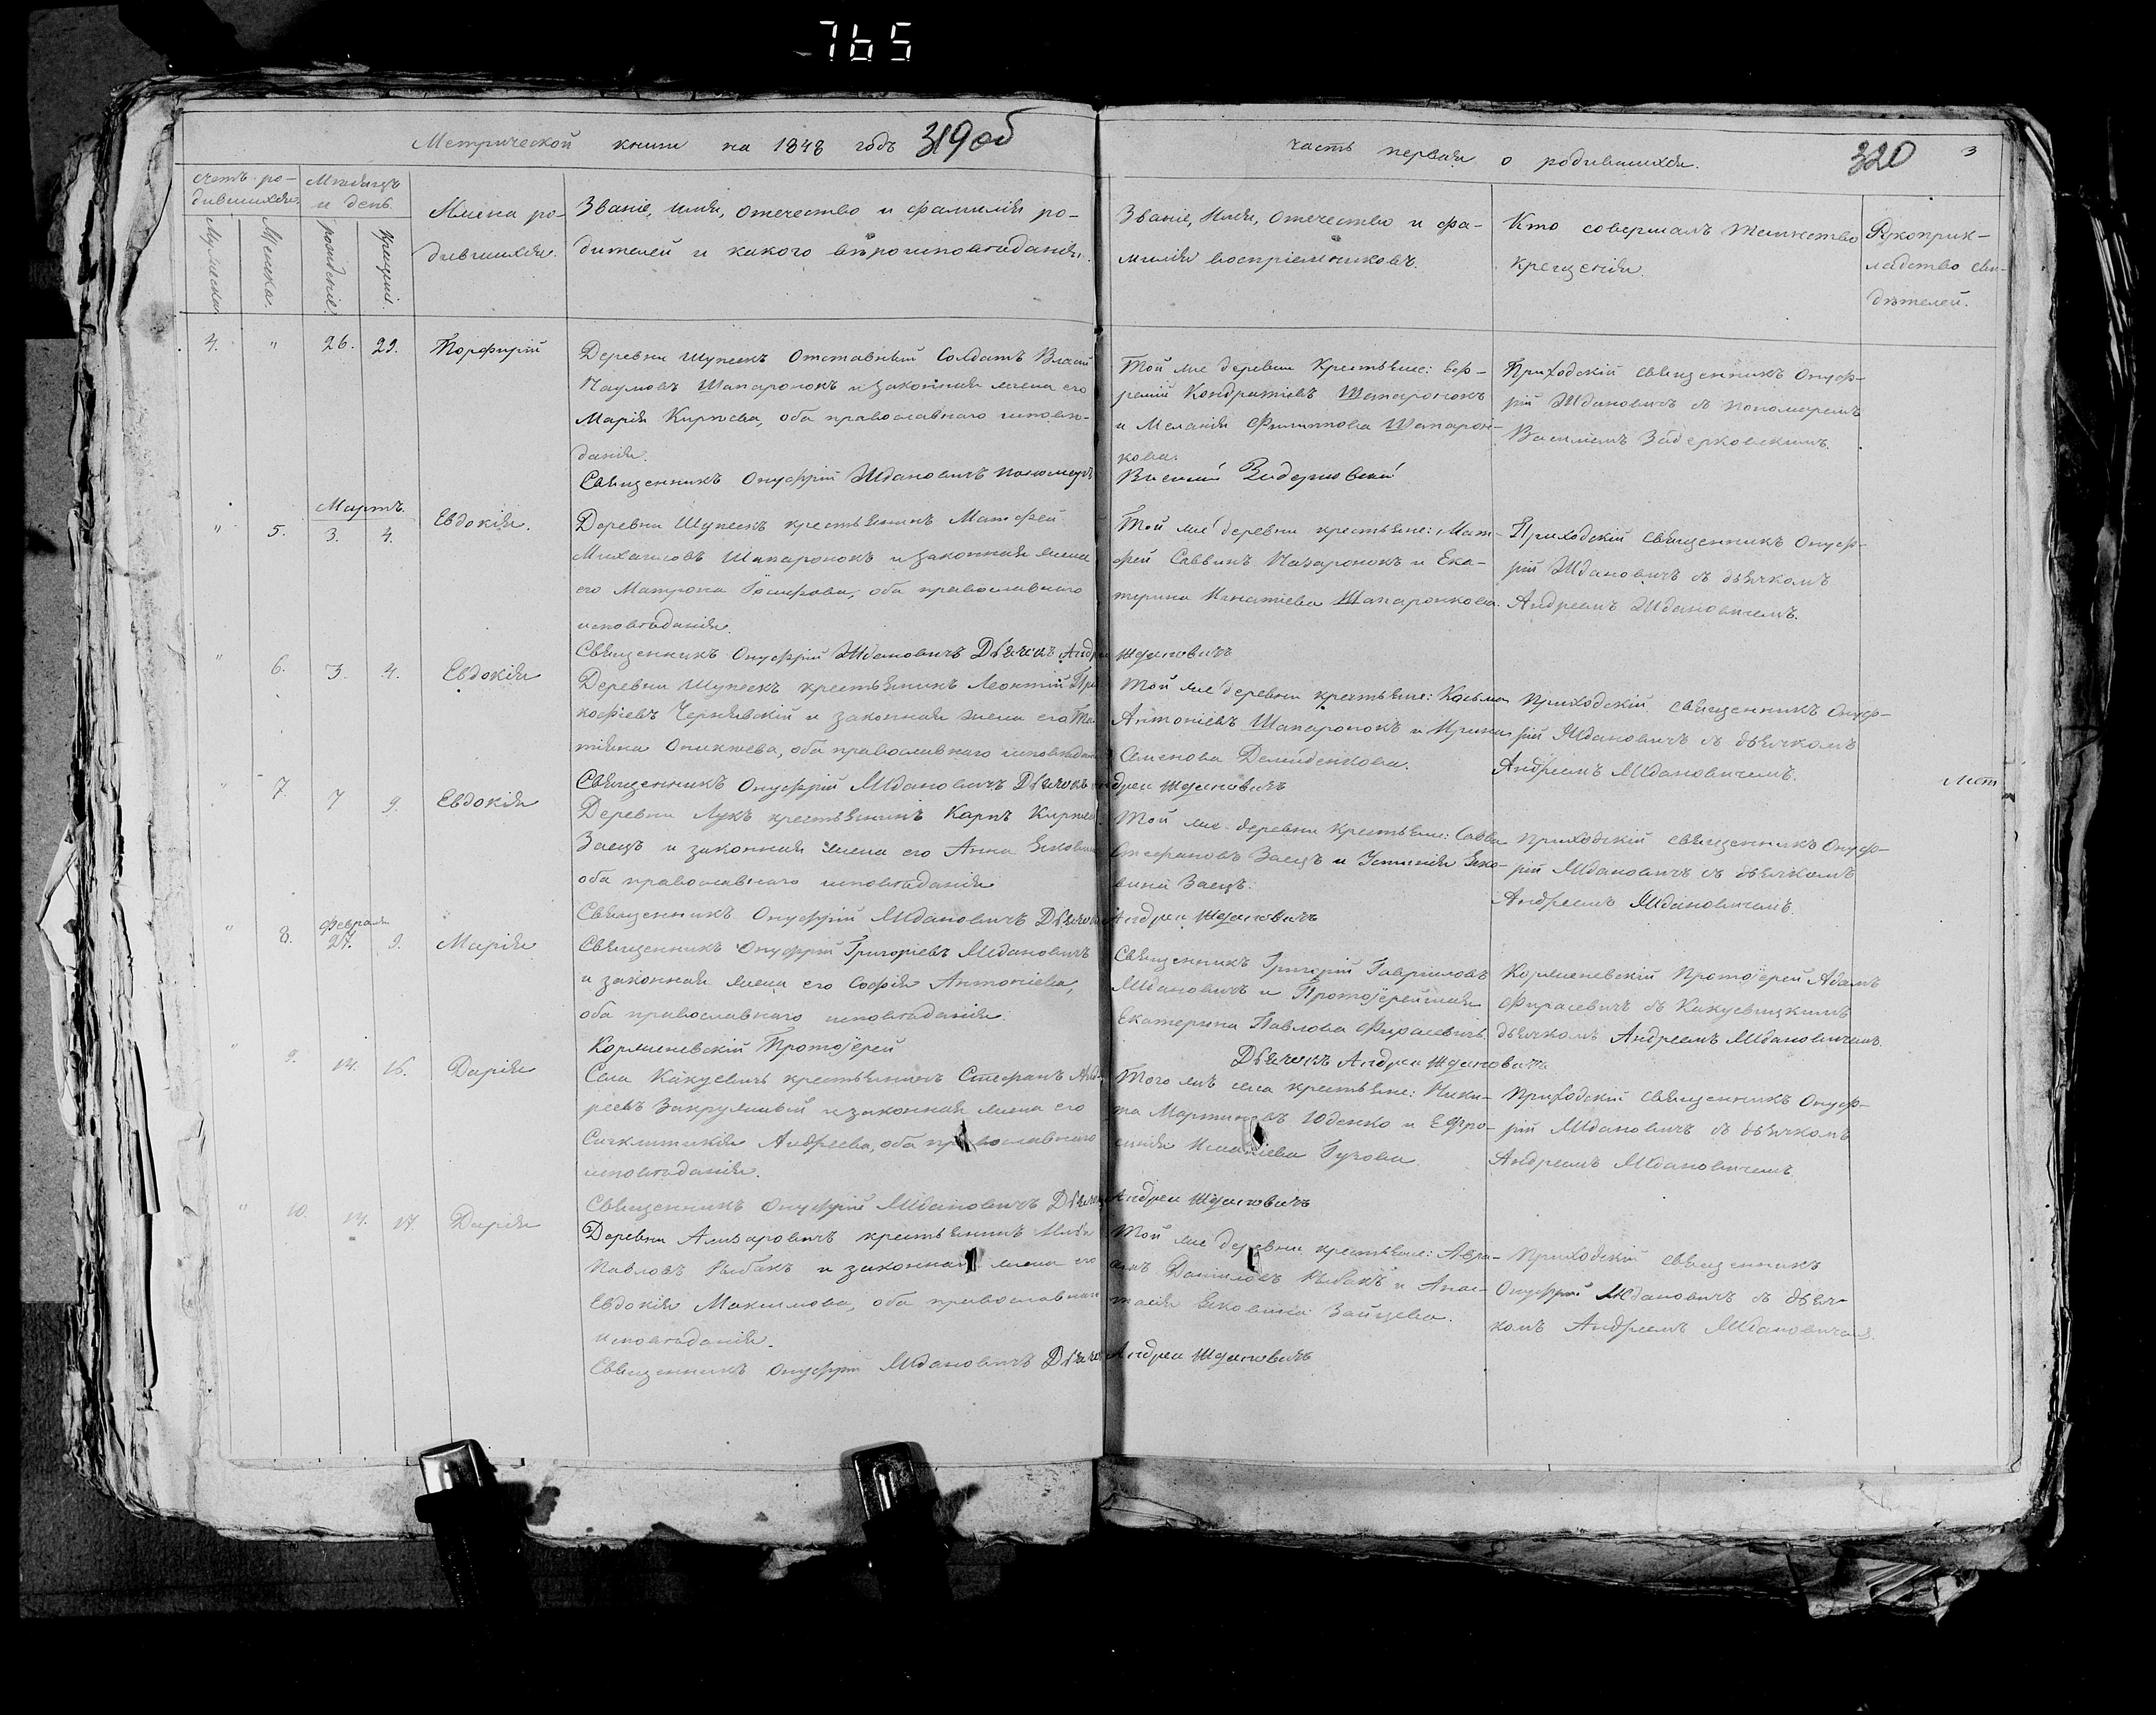 765
Метрической книги на 1848 годъ 319об
часть первая о родившихся. 320 3
счетъ ро-
дившихся.
Мѣсяцъ
и день.
Мужеска.
Женска.
рожденіе.
крещеніе.
Имена ро-
дившихся.
Званіе, имя, отечество и фамилія ро-
дителей и какого вѣроисповѣданія.
Званіе, имя, отечество и фа-
милія воспріемниковъ.
Кто совершалъ таинство
крещенія.
Рукоприк-
ладство сви-
дѣтелей.
4. " 26. 29. Порфирій
Деревни Шупеекъ Отставный Солдатъ Власій
Наумовъ Шапаронокъ и законная жена его
Марія Кирѣева, оба православнаго исповѣ-
данія.
Священникъ Онуфрій Ждановичъ пономарь
Той же деревни Крестьяне: Еф-
ремій Кондратіевъ Шапаронокъ
и Меланія Филиппова Шапарон-
кова.
Василій Задерковскій
Приходскій священникъ Онуф-
рій Ждановичъ съ пономаремъ
Василіемъ Задерковскимъ.
Мартъ.
" 5. 3. 4. Евдокія.
Деревни Шупеекъ крестьянинъ Матфей
Михайловъ Шапаронокъ и законная жена
его Матрона Іосифова, оба православнаго
исповѣданія.
Священникъ Онуфрій Ждановичъ Дьячокъ Андрей
Той же деревни крестьяне: Мат-
фей Саввинъ Назаронокъ и Ека-
терина Игнатіева Шапаронкова.
Ждановичъ
Приходскій священникъ Онуф-
рій Ждановичъ съ дьячкомъ
Андреемъ Ждановичемъ.
" 6. 3. 4. Евдокія
Деревни Шупеекъ крестьянинъ Леонтій Про-
кофіевъ Чернявскій и законная жена его Та-
тіяна Оникіева, оба православнаго исповѣданія
Священникъ Онуфрій Ждановичъ Дьячокъ
Той же деревни крестьяне: Косьма
Антоніевъ Шапаронокъ и Ирина
Семенова Демиденкова.
Андрей Ждановичъ
Приходскій священникъ Онуф-
рій Ждановичъ съ дьячкомъ
Андреемъ Ждановичемъ.
" 7. 7 9. Евдокія
Деревни Лукъ крестьянинъ Карпъ Кирѣев
Заецъ и законная жена его Анна Яковлева
оба православнаго исповѣданія
Священникъ Онуфрій Ждановичъ Дьячокъ
Той же деревни Крестьяне: Савва
Стефановъ Заецъ и Устинія Яко-
вина Заецъ.
Андрей Ждановичъ
Приходскій священникъ Онуф-
рій Ждановичъ съ дьячкомъ
Андреемъ Ждановичемъ.
Лист
Февраля
" 8. 27. 9. Марія
Священникъ Онуфрій Григоріевъ Ждановичъ
и законная жена его Софія Антоніева,
оба православнаго исповѣданія.
Кормяневскій Протоіерей
Священникъ Григорій Гавриловъ
Ждановичъ и Протоіерейшая
Екатерина Павлова Фирасевичъ.
Дьячокъ Андрей Ждановичъ
Кормяневскій Протоіерей Адамъ
Фирасевичъ съ Какуевицкимъ
дьячкомъ Андреемъ Ждановичемъ.
" 9. 14. 16. Дарія
Села Какуевичъ крестьянинъ Стефанъ Анд-
реевъ Закружный и законная жена его
Синклитикія Андреева, оба православнаго
исповѣданія.
Священникъ Онуфрій Ждановичъ Дьячокъ
Того жъ села крестьяне: Ники-
та Мартиновъ Юденко и Ефро-
синія Игнатіева Гузова
Андрей Ждановичъ
Приходскій священникъ Онуф-
рій Ждановичъ съ дьячкомъ
Андреемъ Ждановичемъ
" 10. 14. 17 Дарія
Деревни крестьянинъ
Павловъ Рыбакъ и законная жена его
Евдокія Максимова, оба православнаго
исповѣданія.
Священникъ Онуфрій Ждановичъ Дьячокъ
Той же деревни крестьяне: Авра-
амъ Даниловъ Рыбакъ и Анас-
тасія Яковлина Зайцева.
Андрей Ждановичъ
Приходскій священникъ
Онуфрій Ждановичъ съ дьяч-
комъ Андреемъ Ждановичемъ.